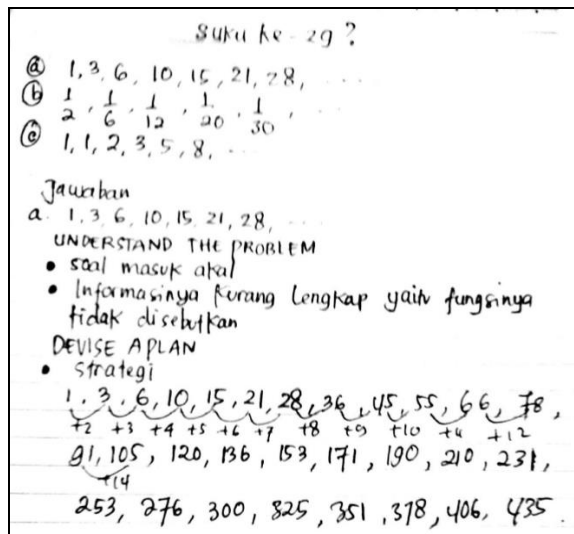 Suku ke-29?
ⓐ 1, 3, 6, 10, 15, 21, 28, ....
ⓑ 1/2, 1/6, 1/12, 1/20, 1/30, ...
ⓒ 1, 1, 2, 3, 5, 8, ...
Jawaban
a. 1, 3, 6, 10, 15, 21, 28, ....
UNDERSTAND THE PROBLEM
• soal masuk akal
• Informasinya kurang lengkap yaitu fungsinya
tidak disebutkan
DEVISE A PLAN
• Strategi
1, 3, 6, 10, 15, 21, 28, 36, 45, 55, 66, 78,
+2 +3 +4 +5 +6 +7 +8 +9 +10 +11 +12
91, 105, 120, 136, 153, 171, 190, 210, 231,
+14
253, 276, 300, 325, 351, 378, 406, 435.